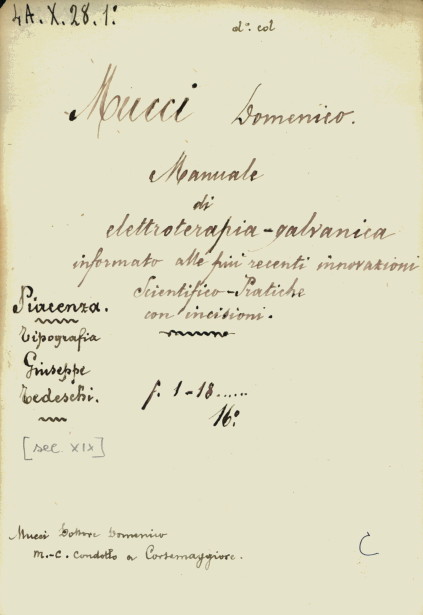 4A.X.28.1º
d.º col
Mucci Domenico.
Manuale
di
elettroterapia-galvanica
informato alle più recenti innovazioni
Scientifico-Pratiche
con incisioni.
Piacenza.
Tipografia
Giuseppe
Tedeschi.
f. 1-18......
16º
[sec XIX]
Mucci Dottore Domenico
m.-c. condotto a Cortemaggiore.
C